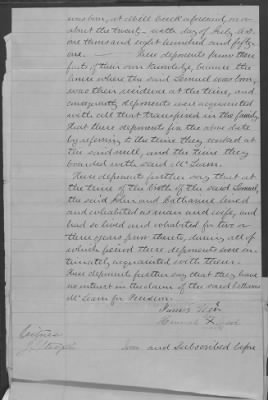 was born, at Mill Creek aforesaid, on or
about the twenty- sixth day of July A.D.
one thousand and eight hundred and fifty
one. — These deponents know these
facts of their own knowledge, because the
house where the said Lemuel was born,
was their residence at the time, and
consequently deponents were acquainted
with all that transpired in the family,
that these deponents fix the above date
by referring to the time they worked at
the said mill, and the time they
boarded with said McLean.
These deponents further say that at
the time of the birth of the said Lemuel,
the said John and Catharine lived
and cohabited as man and wife, and
had so lived and cohabited for two or
three years prior thereto, during all of
which period these deponents were in-
timately acquainted with them.
These deponents further say that they have
no interest in the claim of the said Catharine
McLean for Pension.
James
Witness
Sworn and Subscribed before